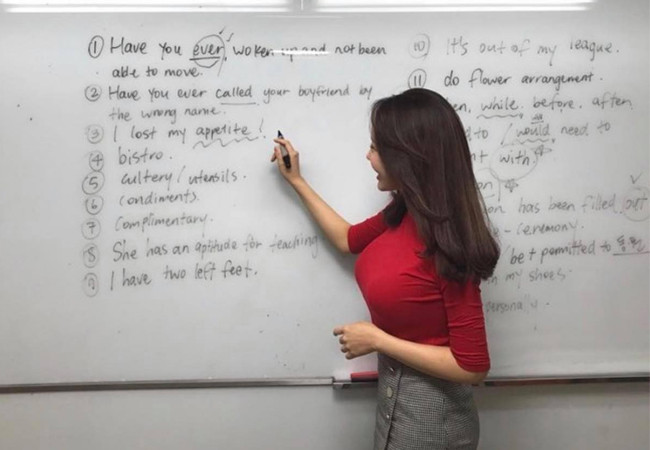 ① Have you ever woken up and not been
able to move.
② Have you ever called your boyfriend by
the wrong name.
③ I lost my appetite!
④ bistro.
⑤ cultery/utensils.
⑥ condiments.
⑦ Complimentary.
⑧ She has an aptitude for teaching
⑨ I have two left feet.
⑩ It's out of my league.
⑪ do flower arrangement.
while. before. after
would need to
with
has been filled out
ceremony.
be permitted to
my shoes.